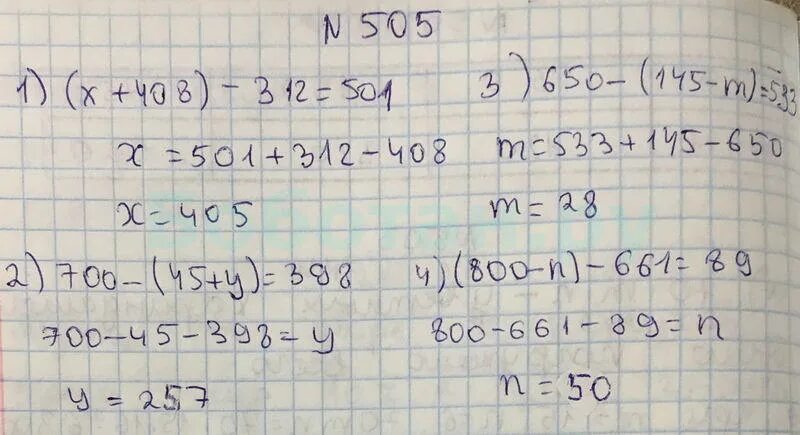 N 505
1) (x + 408) - 312 = 501
x = 501 + 312 - 408
x = 405
2) 700 - (45 + y) = 398
700 - 45 - 398 = y
y = 257
3) 650 - (145 - m) = 533
m = 533 + 145 - 650
m = 28
4) (800 - n) - 661 = 89
800 - 661 - 89 = n
n = 50